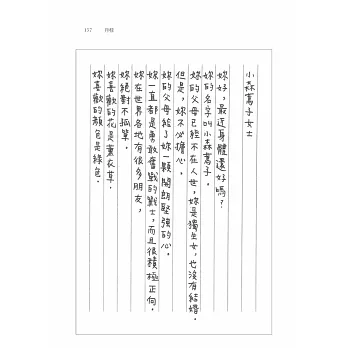 157
小森篤子女士
妳好，最近身體還好嗎？
妳的名字叫小森篤子。
妳的父母已經不在人世，妳是獨生女，也沒有結婚。
但是，妳不必擔心。
妳的父母給了妳一顆開朗堅強的心。
妳一直都是勇敢奮戰的戰士，而且很積極正向。
妳在世界各地有很多朋友，
妳絕對不孤單。
妳喜歡的花是薰衣草。
妳喜歡的顏色是綠色。